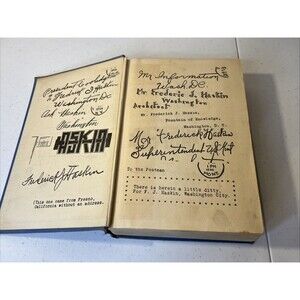 President Coolidge
% Fredric J Haskin
Washington DC
Ask Haskin
Washington
HASKIN
Frederick J Haskin
(This one came from Fresno,
California without an address.
Mr Information
Wash DC.
Mr Frederic J Haskin
Washington
Mr. Frederick J. Haskin,
Fountain of Knowledge,
Washington, D. C.
Frederick Haskins
Superintendent
To the Postman
There is herein a little ditty,
For F. J. Haskin, Washington City.